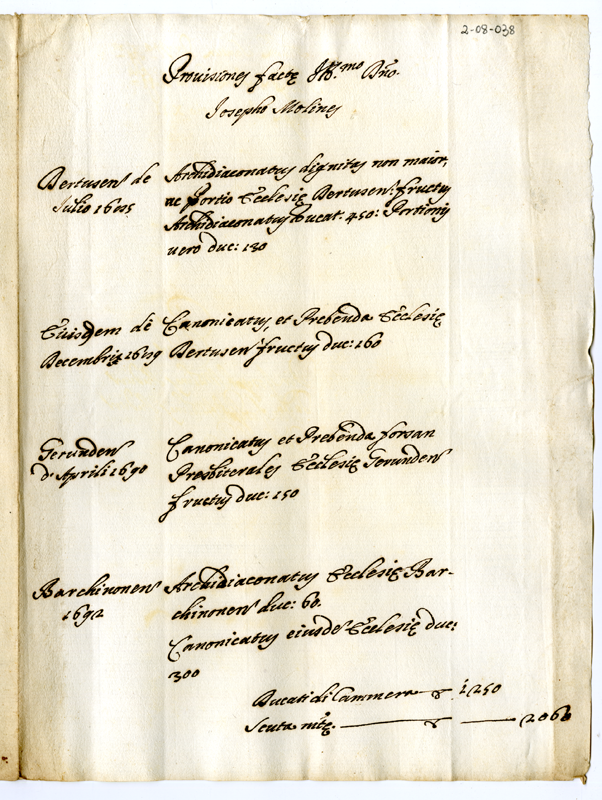 2-08-038
Provisiones factę Ill.mo Dño.
Josepho Molines
Dertusen de
Julio 1685
Archidiaconatus dignitas non maior,
ac Portio Ecclesię Dertusen: fructus
Archidiaconatus Ducat: 450: Portionis
vero duc: 130
Eiusdem de
Decembris 1689
Canonicatus, et Prebenda Ecclesię
Dertusen fructus duc: 160
Gerunden
d'Aprili 1690
Canonicatus et Prebenda forsan
Presbiterales Ecclesię Gerunden
fructus duc: 150
Barchinonen
1692
Archidiaconatus Ecclesię Bar-
chinonen duc: 60.
Canonicatus eiusdẽ Ecclesię duc:
300
Ducati di Cammera 1250
Scuta mtę. 2060